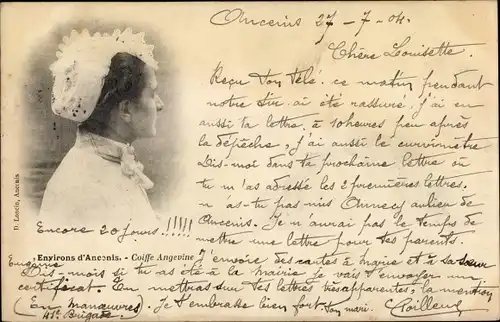 Ancenis 27-7-04.
Chère Louisette.
Reçu ton télé. ce matin pendant
notre tir. ai été rassuré, j'ai eu
aussi ta lettre. à 10 heures peu après
la dépêche, j'ai aussi le curvimètre
Dis-moi dans ta prochaine lettre où
tu m'as adressé les 2 premières lettres.
n'as-tu pas mis Annecy au lieu de
Ancenis. Je n'aurai pas le temps de
mettre une lettre pour tes parents.
J'envoie des cartes à Marie et à sa sœur
Eugénie
Dis-mois si tu as été à la Mairie je vais t'envoyer un
certificat. En mettras sur tes lettres très apparentes, la mention
(En manœuvres). Je t'embrasse bien fort ton mari.
41e Brigade.
Encore 20 jours !!!!!
Environs d'Ancenis. - Coiffe Angevine
Ancenis